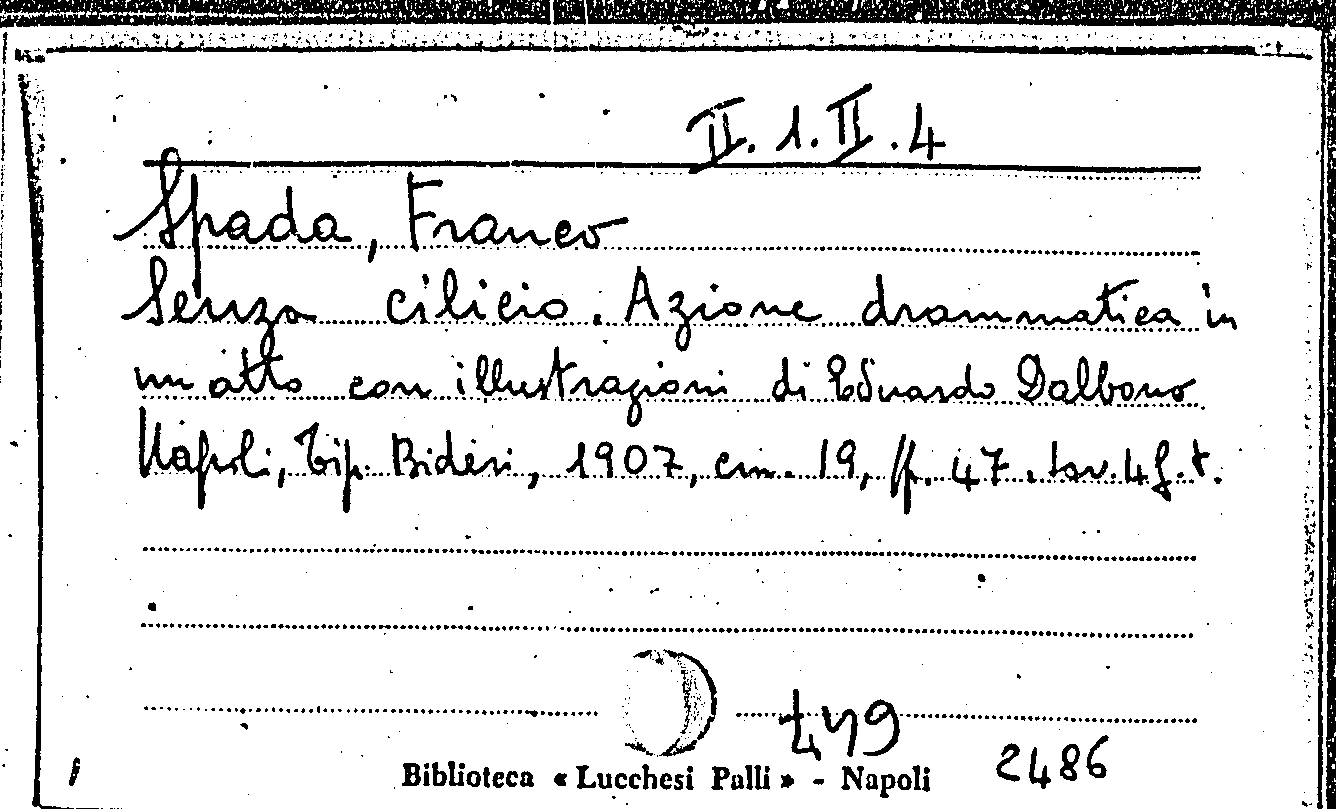 II. 1. II. 4
Spada, Franco
Senza cilicio. Azione drammatica in
un atto con illustrazioni di Eduardo Dalbono
Napoli, Tip. Bideri, 1907, cm. 19, pp. 47. tav. 4 f. t.
2486
Biblioteca « Lucchesi Palli » - Napoli